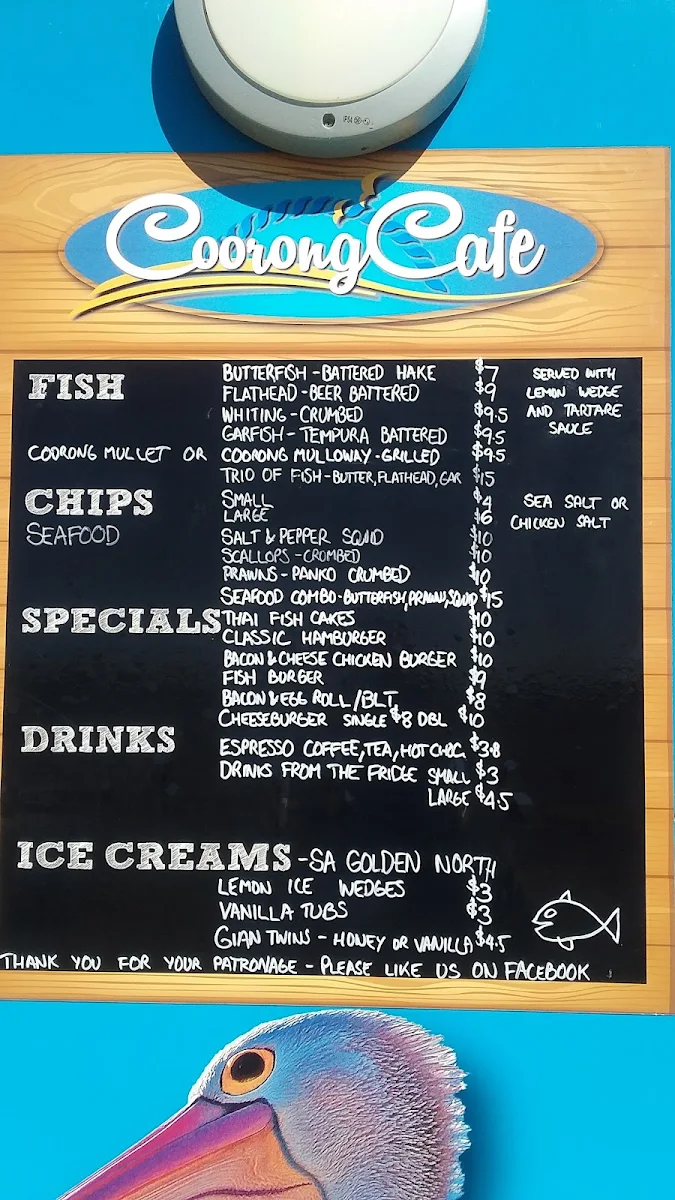 Coorong Cafe
FISH BUTTERFISH - BATTERED HAKE $7 SERVED WITH
FLATHEAD - BEER BATTERED $9 LEMON WEDGE
WHITING - CRUMBED $9.5 AND TARTARE
GARFISH - TEMPURA BATTERED $9.5 SAUCE
COORONG MULLET OR COORONG MULLOWAY - GRILLED $9.5
TRIO OF FISH - BUTTER, FLATHEAD, GAR $15
CHIPS SMALL $4 SEA SALT OR
LARGE $6 CHICKEN SALT
SEAFOOD SALT & PEPPER SQUID $10
SCALLOPS - CROMBED $10
PRAWNS - PANKO CRUMBED $10
SEAFOOD COMBO - BUTTERFISH, PRAWN, SQUID $15
SPECIALS THAI FISH CAKES $10
CLASSIC HAMBURGER $10
BACON & CHEESE CHICKEN BURGER $10
FISH BURGER $9
BACON & EGG ROLL / BLT $8
CHEESEBURGER SINGLE $8 DBL $10
DRINKS ESPRESSO COFFEE, TEA, HOT CHOC $3.8
DRINKS FROM THE FRIDGE SMALL $3
LARGE $4.5
ICE CREAMS - SA GOLDEN NORTH
LEMON ICE WEDGES $3
VANILLA TUBS $3
GIAN TWINS - HONEY OR VANILLA $4.5
THANK YOU FOR YOUR PATRONAGE - PLEASE LIKE US ON FACEBOOK